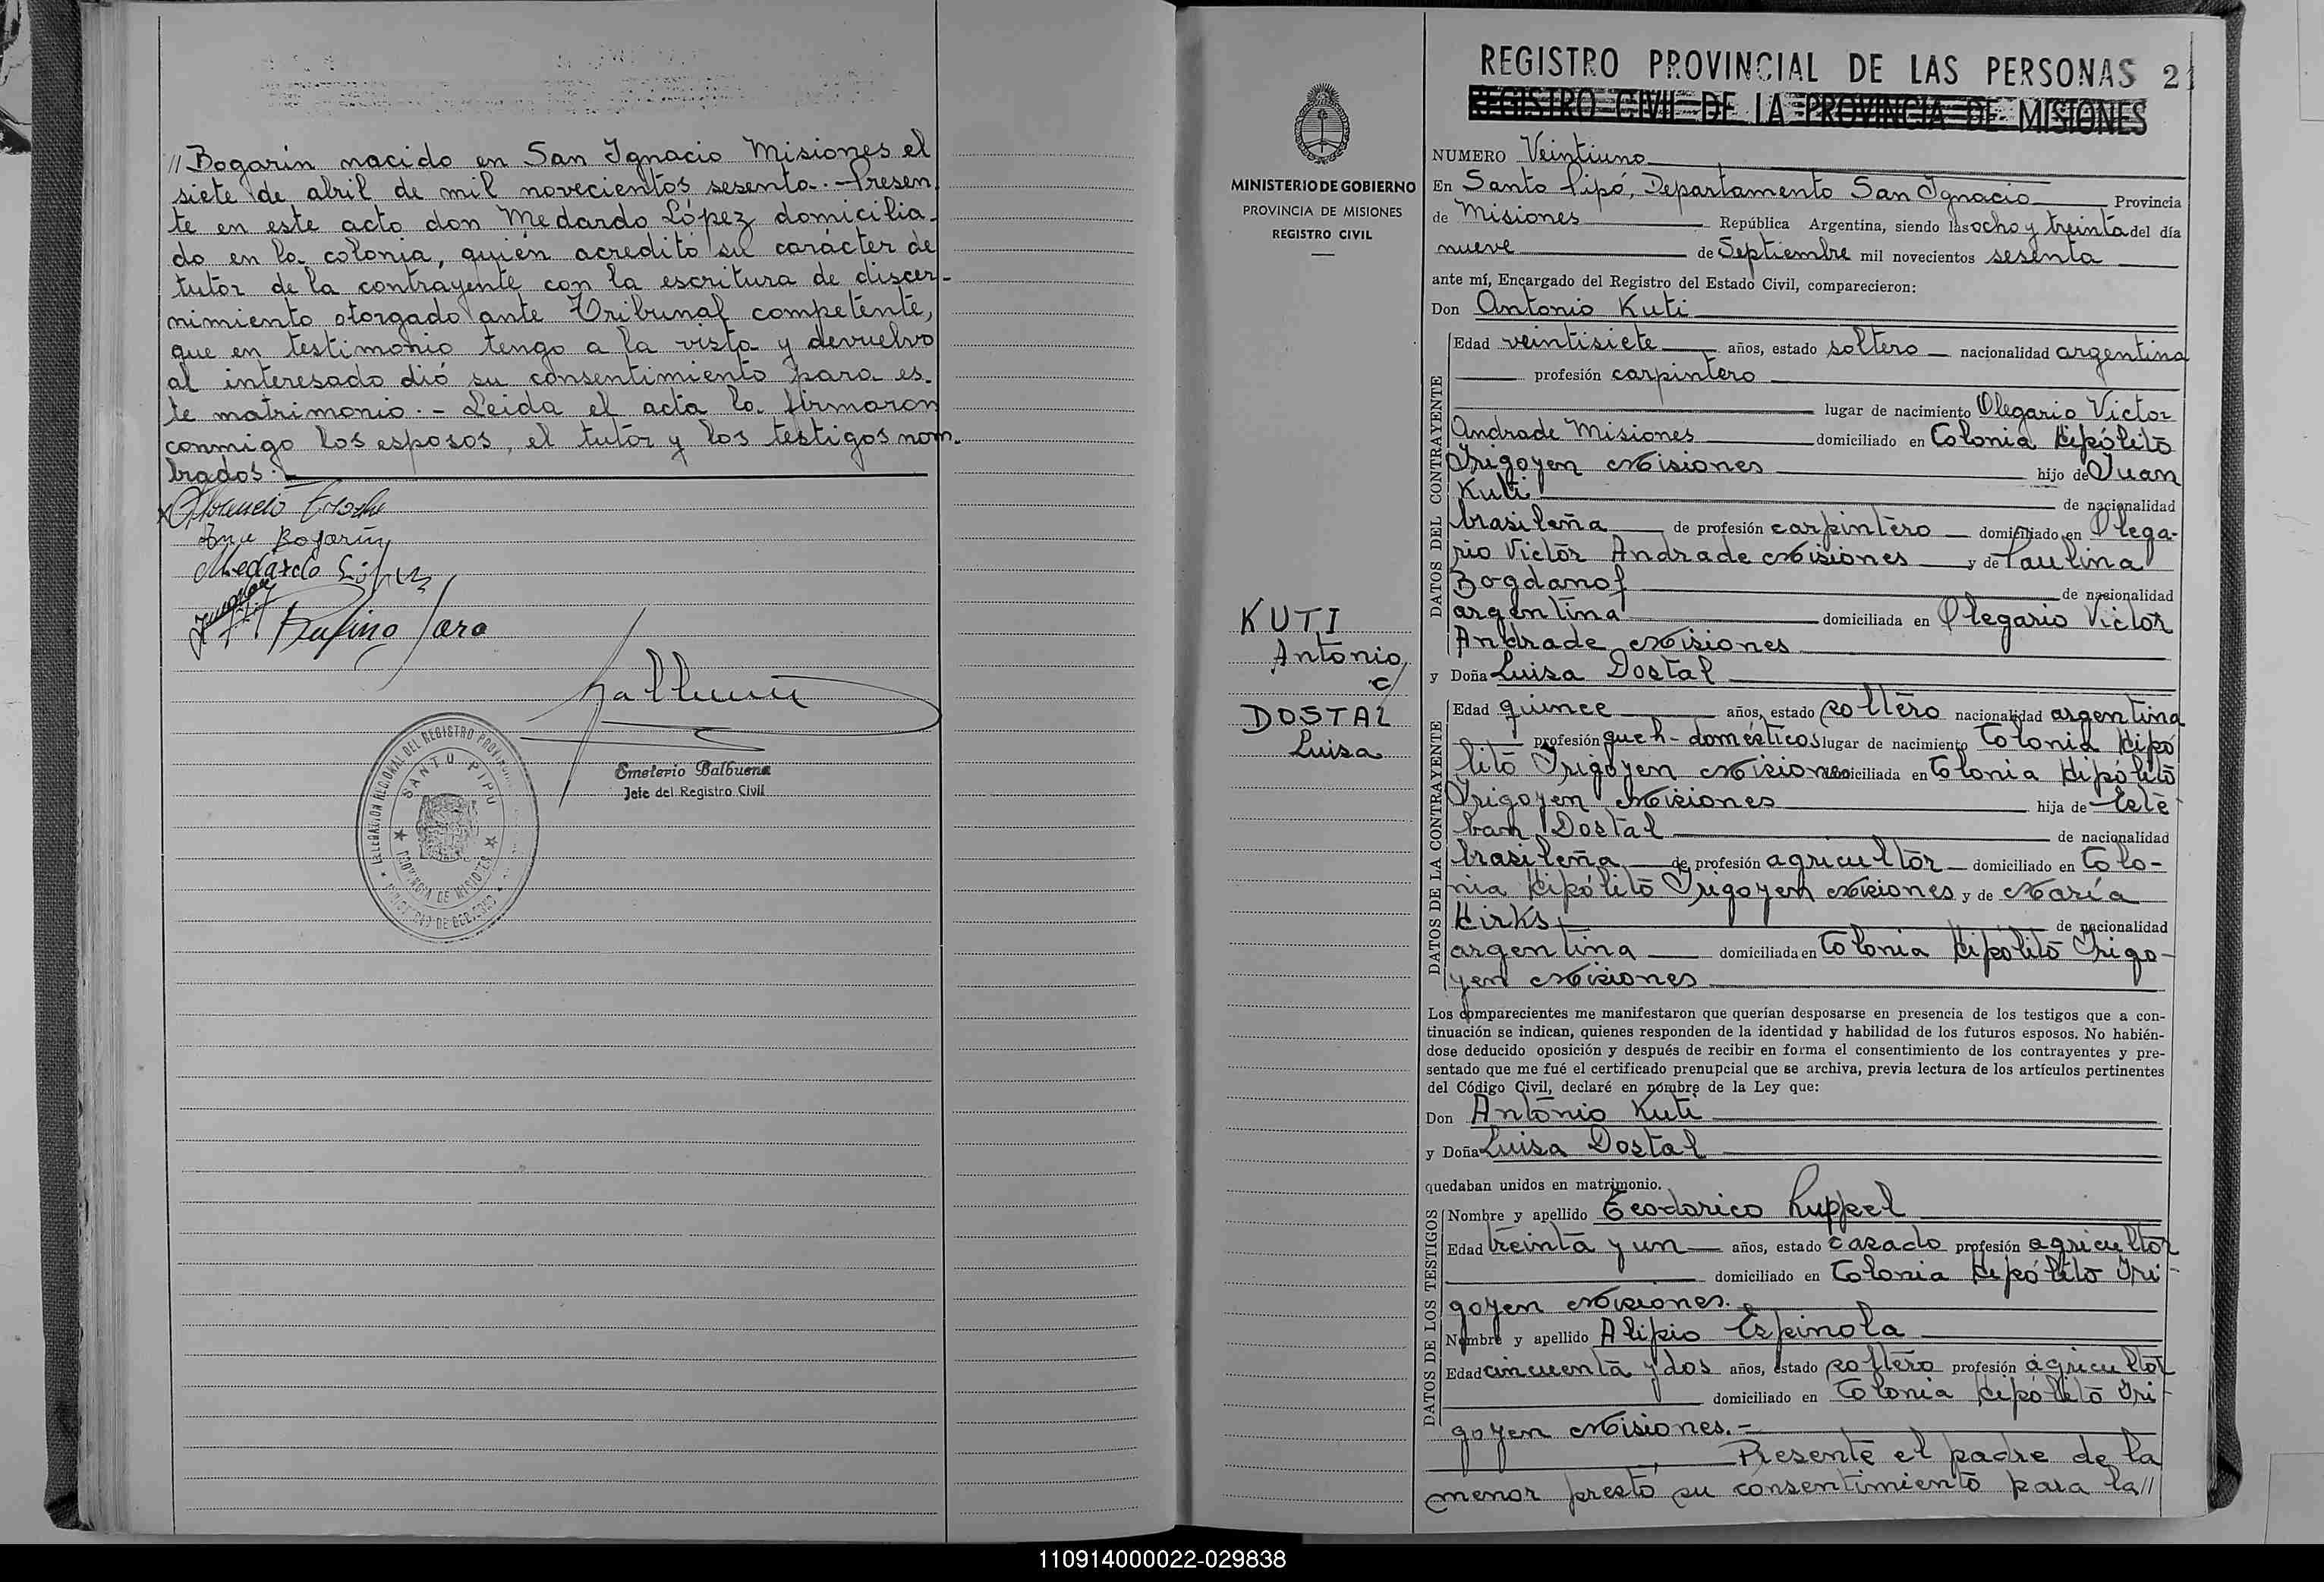 // Bogarín nacido en San Ignacio Misiones el
siete de abril de mil novecientos sesenta.- Presen
te en este acto don Medardo López domicilia-
do en la colonia, quién acredito su carácter de
tutor de la contrayente con la escritura de discer-
nimiento otorgado ante Tribunal competente,
que en testimonio tengo a la vista y devuelvo
al interesado dió su consentimiento para es-
te matrimonio.- Leida el acta la firmaron
conmigo los esposos, el tutor y los testigos nom-
brados.-
Bogarín
Medardo López
Rufino Jara
Emeterio Balbuena
Jefe del Registro Civil
DELEGACION REGIONAL DEL REGISTRO PROVINCIAL
SANTO PIPO
PROVINCIA DE MISIONES
MINISTERIO DE GOBIERNO
PROVINCIA DE MISIONES
REGISTRO CIVIL
KUTI
Antonio
c/
DOSTAL
Luisa
REGISTRO PROVINCIAL DE LAS PERSONAS 21
REGISTRO CIVIL DE LA PROVINCIA DE MISIONES
NUMERO Veintiuno
En Santo Pipó, Departamento San Ignacio Provincia
de Misiones República Argentina, siendo las ocho y treinta del día
nueve de Septiembre mil novecientos sesenta
ante mí, Encargado del Registro del Estado Civil, comparecieron:
Don Antonio Kuti
DATOS DEL CONTRAYENTE
Edad veintisiete años, estado soltero nacionalidad argentina
profesión carpintero
lugar de nacimiento Olegario Victor
Andrade Misiones domiciliado en Colonia Hipólito
Irigoyen Misiones hijo de Juan
Kuti de nacionalidad
brasileña de profesión carpintero domiciliado en Olega-
rio Victor Andrade Misiones y de Paulina
Bogdanof de nacionalidad
argentina domiciliada en Olegario Victor
Andrade Misiones
y Doña Luisa Dostal
DATOS DE LA CONTRAYENTE
Edad quince años, estado soltero nacionalidad argentina
profesión queh- domésticos lugar de nacimiento Colonia Hipó
lito Irigoyen Misiones domiciliada en Colonia Hipólito
Irigoyen Misiones hija de Este
ban Dostal de nacionalidad
brasileña de profesión agricultor domiciliado en Colo-
nia Hipólito Irigoyen Misiones y de María
Hirks de nacionalidad
argentina domiciliada en Colonia Hipólito Irigo-
yen Misiones
Los comparecientes me manifestaron que querían desposarse en presencia de los testigos que a con-
tinuación se indican, quienes responden de la identidad y habilidad de los futuros esposos. No habién-
dose deducido oposición y después de recibir en forma el consentimiento de los contrayentes y pre-
sentado que me fué el certificado prenupcial que se archiva, previa lectura de los artículos pertinentes
del Código Civil, declaré en nombre de la Ley que:
Don Antonio Kuti
y Doña Luisa Dostal
quedaban unidos en matrimonio.
DATOS DE LOS TESTIGOS
Nombre y apellido Teodorico Ruppel
Edad treinta y un años, estado casado profesión agricultor
domiciliado en Colonia Hipólito Iri-
goyen Misiones.
Nombre y apellido Alipio Espinola
Edad cincuenta y dos años, estado soltero profesión agricultor
domiciliado en Colonia Hipólito Iri-
goyen Misiones.-
Presente el padre de la
menor prestó su consentimiento para la//
110914000022-029838